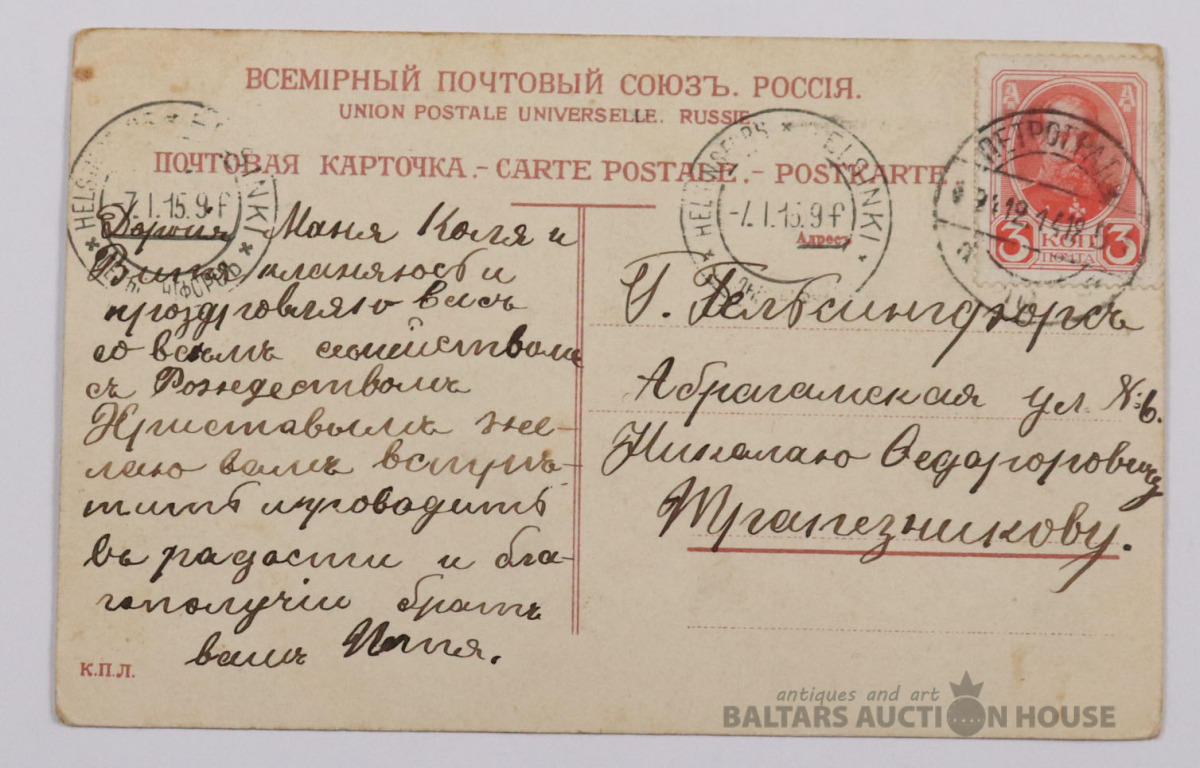 ВСЕМІРНЫЙ ПОЧТОВЫЙ СОЮЗЪ. РОССІЯ.
UNION POSTALE UNIVERSELLE. RUSSIE
ПОЧТОВАЯ КАРТОЧКА.-CARTE POSTALE.-POSTKARTE
-7.I.15.9-f
HELSINKI
-7.I.15.9-f
ПЕТРОГРАДЪ
3 КОП 3
ПОЧТА
Адресъ
Маня Коля и
кланяюсь и
проздровляю васъ
со всѣмъ семѣйствомъ
съ Рождествомъ
Христавымъ же-
лаю вамъ встрѣ-
тить и проводить
въ радости и бла-
гополучіи братъ
вашъ
Г. Гельсингфорсъ
Абрагамская ул. № 6.
Николаю Ѳедароровичу
Трапезникову.
К.П.Л.
antiques and art
BALTARS AUCTION HOUSE